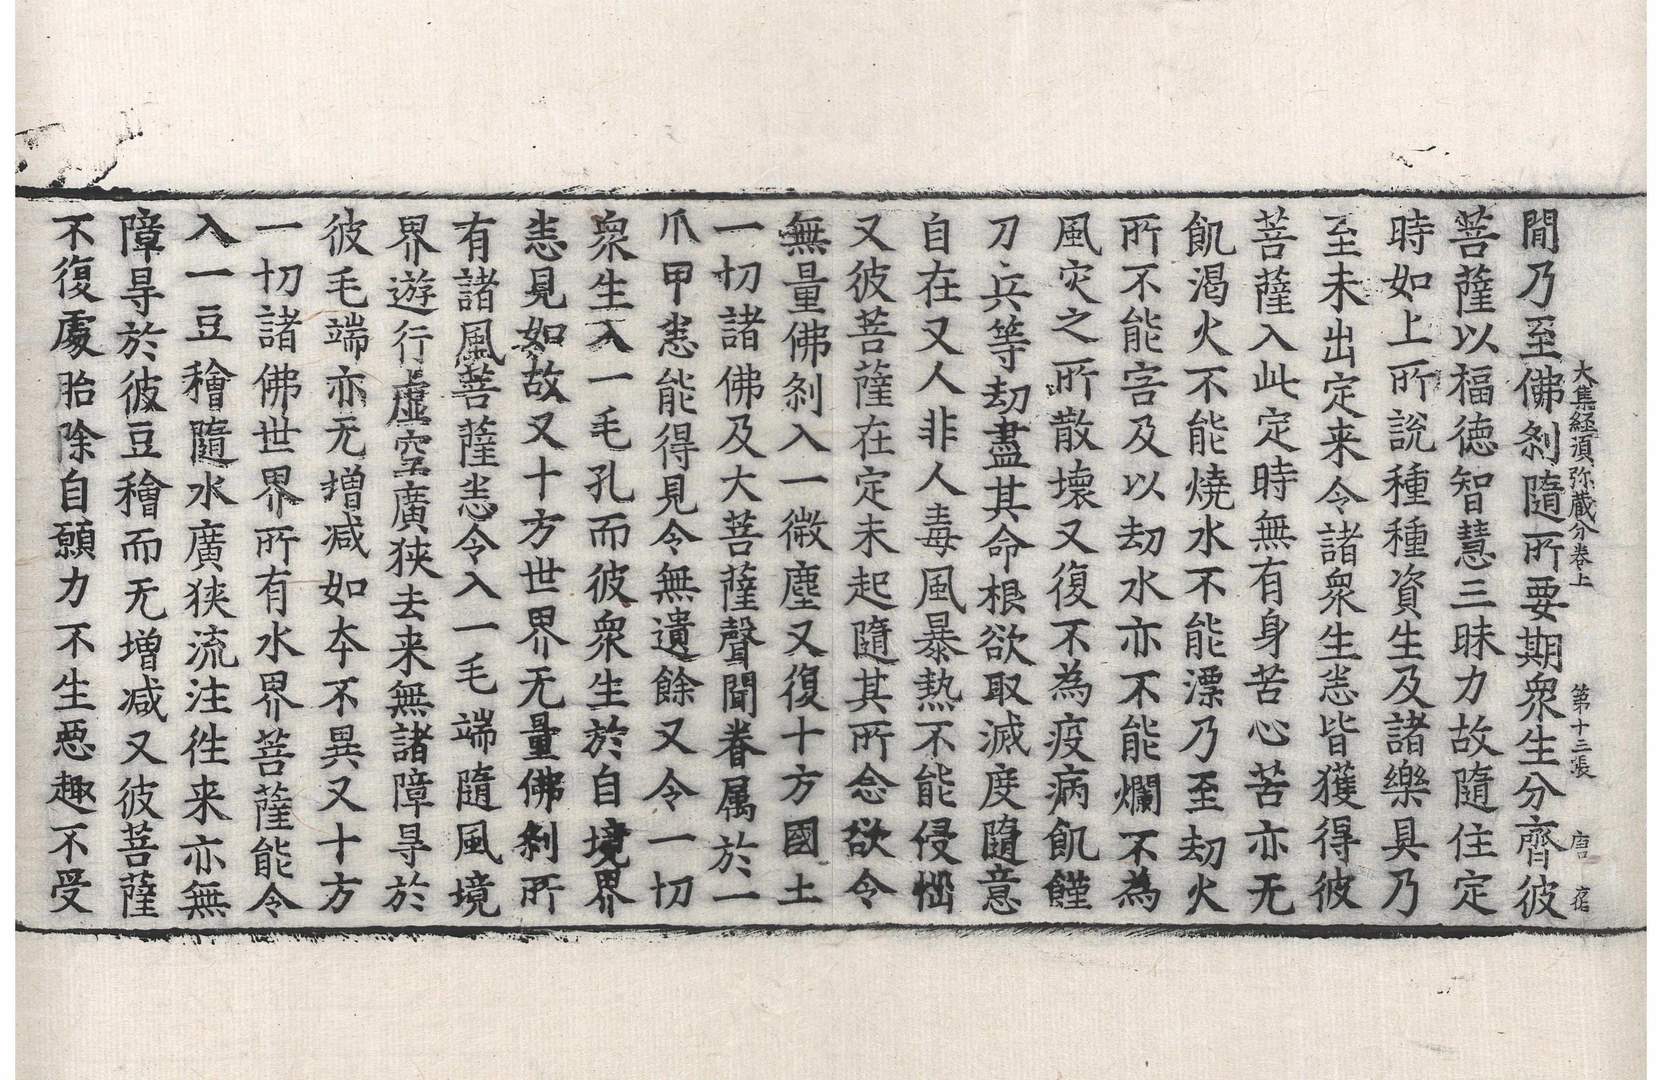 大集経須弥蔵分巻上 第十三張 唐 宿
間乃至佛刹隨所要期衆生分齊彼
菩薩以福徳智慧三昧力故隨住定
時如上所説種種資生及諸樂具乃
至未出定来令諸衆生㤙皆獲得彼
菩薩入此定時無有身苦心苦亦无
飢渴火不能燒水不能漂乃至劫火
所不能害及以劫水亦不能爛不為
風灾之所散壞又復不為疫病飢饉
刀兵等劫盡其命根欲取滅度隨意
自在又人非人毒風暴熱不能侵惱
又彼菩薩在定未起隨其所念欲令
無量佛刹入一微塵又復十方國土
一切諸佛及大菩薩聲聞眷属於一
爪甲㤙能得見令無遺餘又令一切
衆生入一毛孔而彼衆生於自境界
㤙見如故又十方世界无量佛刹所
有諸風菩薩㤙令入一毛端隨風境
界遊行虚空廣狹去来無諸障㝵於
彼毛端亦无増减如夲不異又十方
一切諸佛世界所有水界菩薩能令
入一豆穭隨水廣狹流注徃来亦無
障㝵於彼豆穭而无増减又彼菩薩
不復處胎除自願力不生惡趣不受